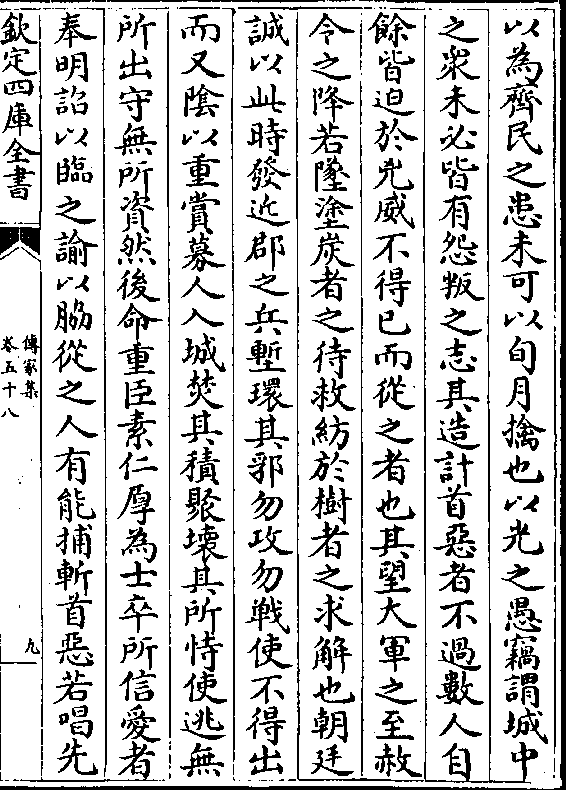 以為齊民之患未可以旬月擒也以光之愚竊謂城中
之衆未必皆有怨叛之志其造計首惡者不過數人自
餘皆迫於兇威不得已而從之者也其望大軍之至赦
令之降若墜塗炭者之待救紡於樹者之求解也朝廷
誠以此時發近郡之兵塹環其郛勿攻勿戰使不得出
而又陰以重賞募人入城焚其積聚壞其所恃使逃無
所出守無所資然後命重臣素仁厚為士卒所信愛者
奉明詔以臨之諭以脇從之人有能捕斬首惡若唱先
欽定四庫全書
傳家集
卷五十八
九